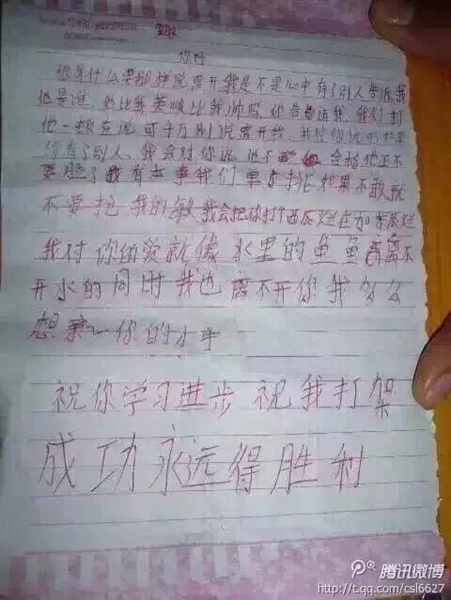 你好
你为什么要那样说离开我是不是心中有了别人告诉我
他是谁 他比我美吗比我帅吗 你告诉我 我们打
他一顿在说 可千万别说离开我
你有了别人、我会对你说 他不 合格他正不
要脸了 有本事我们单挑 如果不敢就
不要抢 我的敏 我会把你打个西瓜烂在加冬瓜烂
我对你的爱就像 水里的鱼 鱼 离不
开水的同时我也离不开你我多么
想亲一你的小手
祝你学习进步 祝我打架
成功永远得胜利
腾讯微博
http://t.qq.com/csl6627